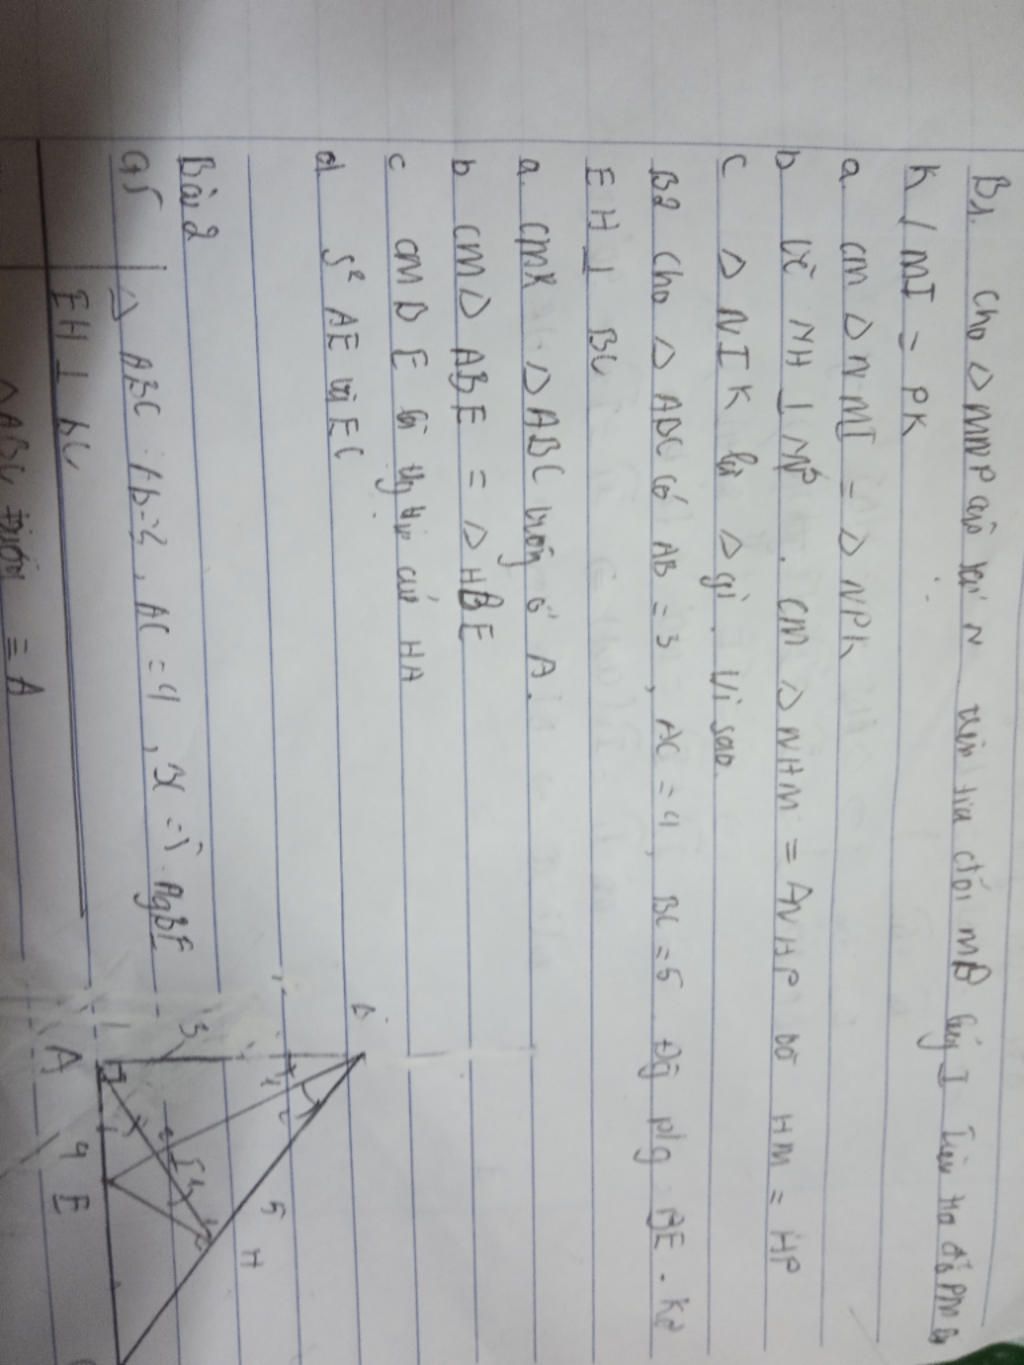 B1. Cho Δ MNP cân tại N trên tia đối MP lấy I trên tia đối PM lấy
K / MI = PK
a CM Δ NMI = Δ NPK
b Vẽ NH ⊥ MP . CM Δ NHM = Δ NHP và HM = HP
c Δ NIK là Δ gì . Vì sao.
B2 Cho Δ ABC có AB = 3 , AC = 4 , BC = 5 Đg p/g BE . Kẻ
EH ⊥ BC
a. CMR Δ ABC vuông ở A .
b CM Δ ABE = Δ HBE
c CM BE là của HA
d S² AE và EC
Bài 2
Δ ABC : Ab=3 , AC = 4 , p/g BE
EH ⊥ BC
Δ ABC = A
B
3
1
2
5
H
1
A
4
E